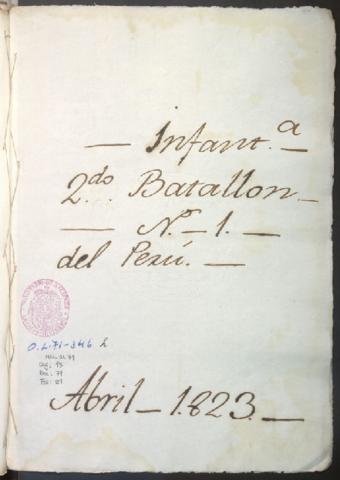 — Infant.ª —
2.do Batallon —
— N.º — 1. —
del Perú. —
O.L. 71-346
Abril — 1.823. —